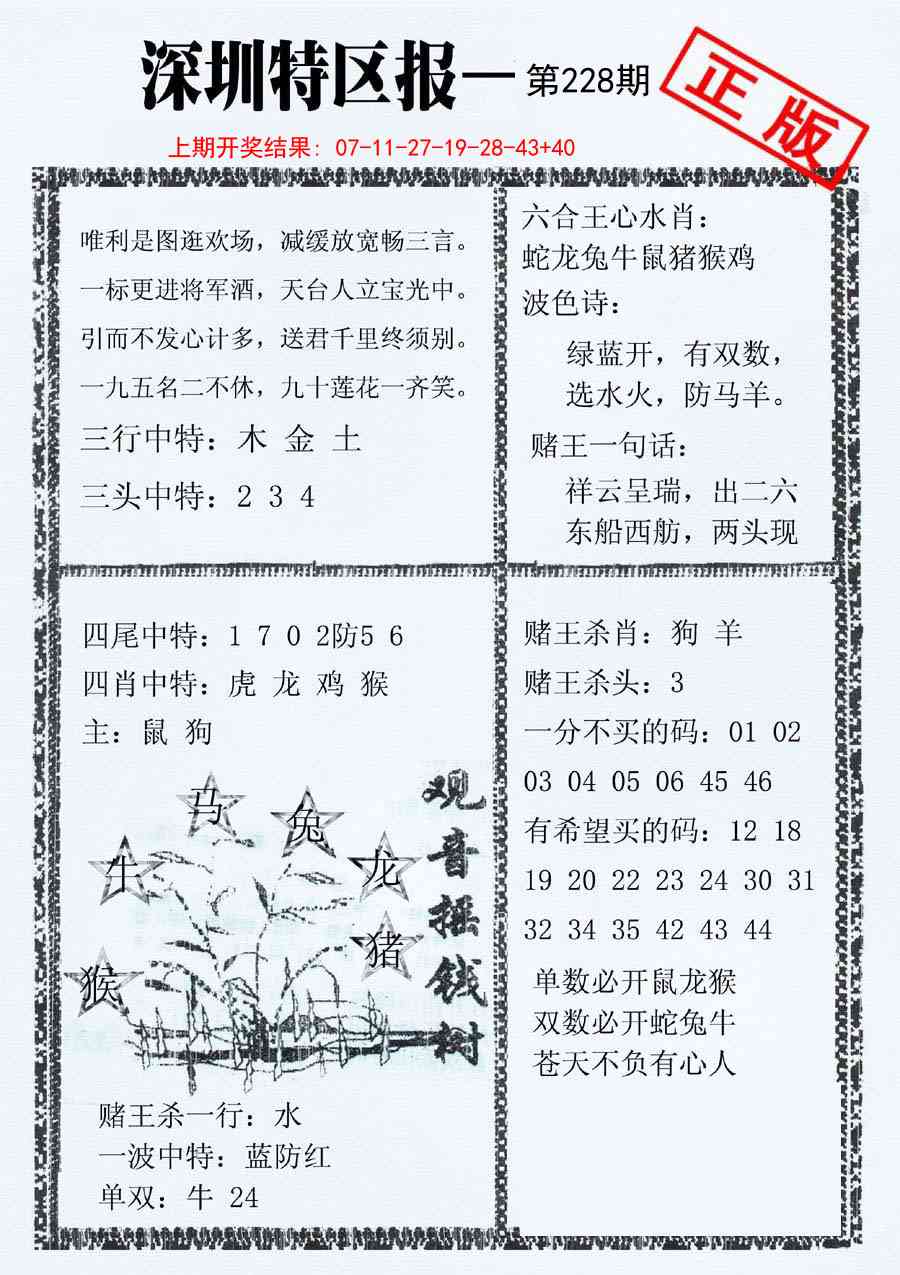 深圳特区报—第228期
正版
上期开奖结果: 07-11-27-19-28-43+40
唯利是图逛欢场，减缓放宽畅三言。
一标更进将军酒，天台人立宝光中。
引而不发心计多，送君千里终须别。
一九五名二不休，九十莲花一齐笑。
三行中特: 木 金 土
三头中特: 2 3 4
六合王心水肖:
蛇龙兔牛鼠猪猴鸡
波色诗:
绿蓝开，有双数，
选水火，防马羊。
赌王一句话:
祥云呈瑞，出二六
东船西舫，两头现
四尾中特: 1 7 0 2防5 6
四肖中特: 虎 龙 鸡 猴
主: 鼠 狗
马
兔
牛
龙
猪
猴
观音摇钱树
赌王杀一行: 水
一波中特: 蓝防红
单双: 牛 24
赌王杀肖: 狗 羊
赌王杀头: 3
一分不买的码: 01 02
03 04 05 06 45 46
有希望买的码: 12 18
19 20 22 23 24 30 31
32 34 35 42 43 44
单数必开鼠龙猴
双数必开蛇兔牛
苍天不负有心人